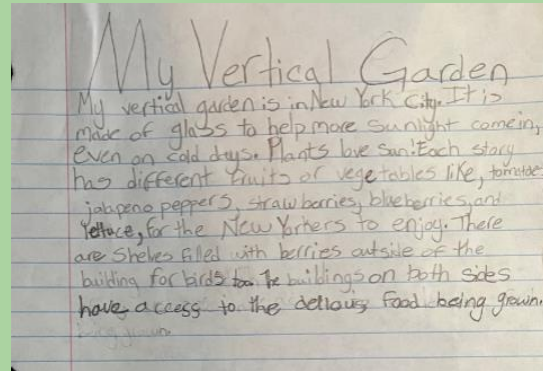 My Vertical Garden
My vertical garden is in New York City. It is
made of glass to help more sunlight come in,
even on cold days. Plants love sun! Each story
has different fruits or vegetables like, tomatoe
jalapeno peppers, strawberries, blueberries, and
lettuce, for the New Yorkers to enjoy. There
are shelves filled with berries outside of the
building for birds too. The buildings on both sides
have access to the delious food being grown.
being grown.